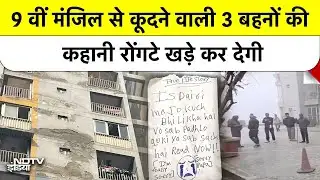 9 वीं मंजिल से कूदने वाली 3 बहनों की
कहानी रोंगटे खड़े कर देगी
Is Dairy
me Jo kuch
Bhi Likha hai
vo sab Padhlo
sab sach
hai Read Now!!
I'm
Sorry
Sorry
Papa
NDTV
इंडिया